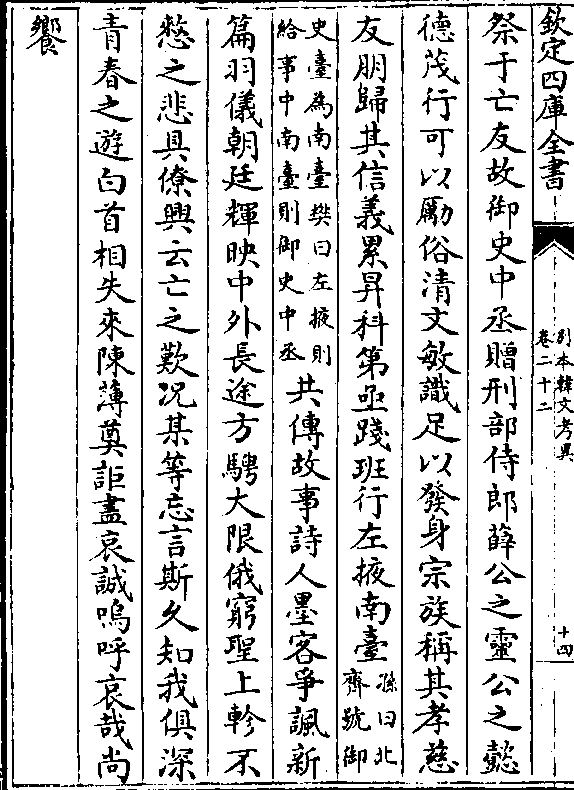 欽定四庫全書
別本韓文考異
卷二十二
十四
祭于亡友故御史中丞贈刑部侍郎薛公之靈公之懿
德茂行可以勵俗清文敏識足以發身宗族稱其孝慈
友朋歸其信義累昇科第亟踐班行左掖南臺
孫曰北
齊號御
史臺為南臺樊曰左掖則
給事中南臺則御史中丞
共傳故事詩人墨客爭諷新
篇羽儀朝廷輝映中外長途方騁大限俄窮聖上軫不
憖之悲具僚興云亡之歎況某等忘言斯久知我俱深
青春之遊白首相失來陳薄奠詎盡哀誠嗚呼哀哉尚
饗